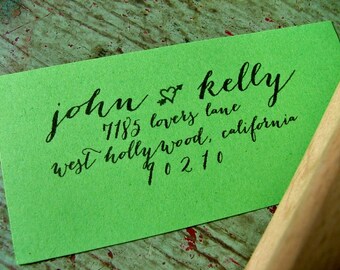 john kelly
7185 lovers lane
west hollywood, california
90210